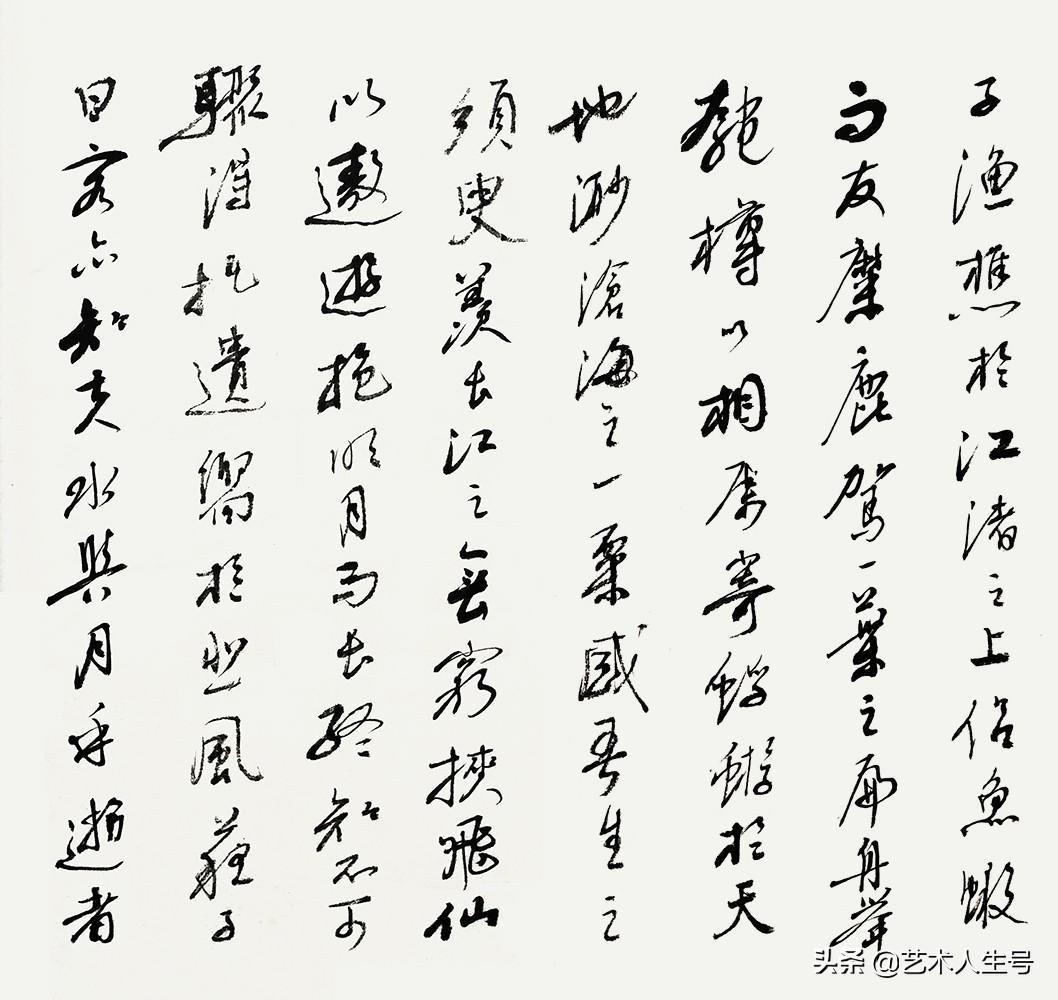 子漁樵於江渚之上侣魚蝦
而友麋鹿駕一葉之扁舟舉
匏樽以相属寄蜉蝣於天
地渺滄海之一粟感吾生之
須臾羨長江之無窮挾飛仙
以遨遊抱明月而長終知不可
驟得托遺響於悲風蘇子
曰客亦知夫水與月乎逝者
头条 @艺术人生号